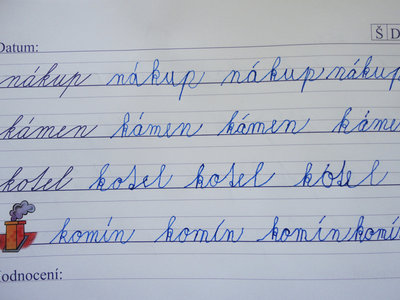 Š D
Datum:
nákup nákup nákup nákup
kámen kámen kámen káme
kotel kotel kotel kotel
komín komín komín komí
Hodnocení: